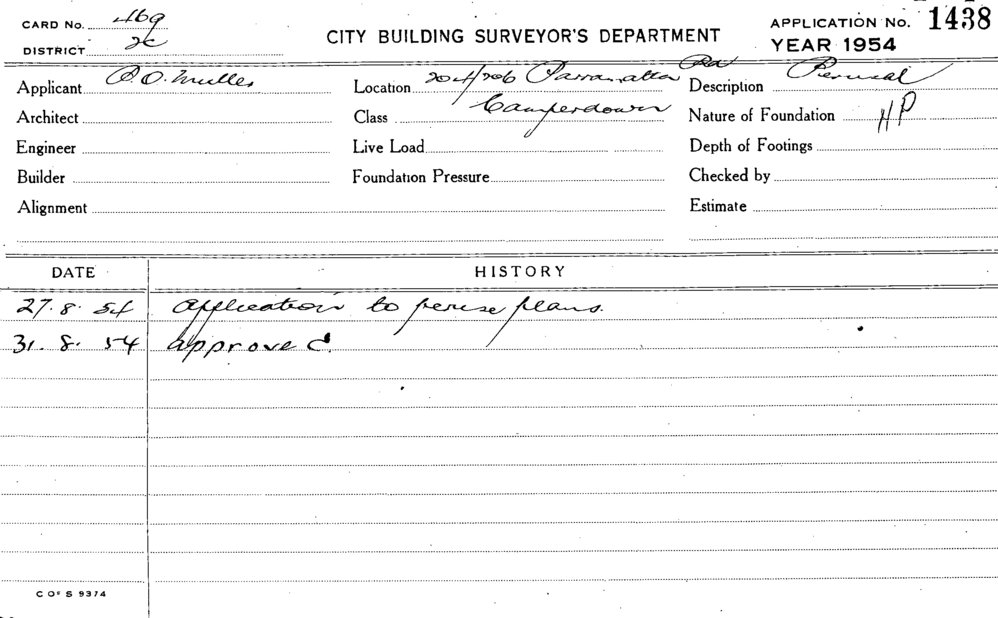 CARD No. 469
DISTRICT 2C
CITY BUILDING SURVEYOR'S DEPARTMENT
APPLICATION No. 1438
YEAR 1954
Applicant O. Muller
Location 204/206 Parramatta Rd
Camperdown
Description Perusal
Architect
Class
Nature of Foundation HP
Engineer
Live Load
Depth of Footings
Builder
Foundation Pressure
Checked by
Alignment
Estimate
DATE HISTORY
27.8.54 Application to peruse plans.
31.8.54 approved.
C OF S 9374